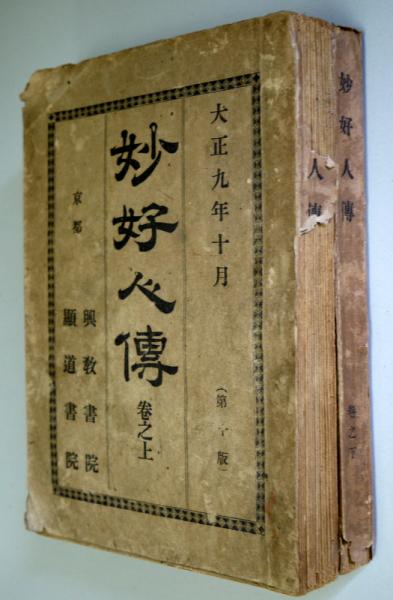 大正九年十月
(第十版)
妙好人傳
卷之上
京都
興教書院
顯道書院
人傳
妙好人傳
卷之下